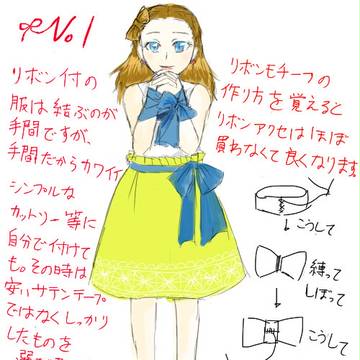 No.1
リボン付の
服は結ぶのが
手間ですが、
手間だからカワイイ
シンプルな
カットソー等に
自分で付けて
も。その時は
安いサテンテープ
ではなくしっかり
したものを
リボンモチーフの
作り方を覚えると
リボンアクセはほぼ
買わなくて良くなります
こうして
縛って
しばって
こうして